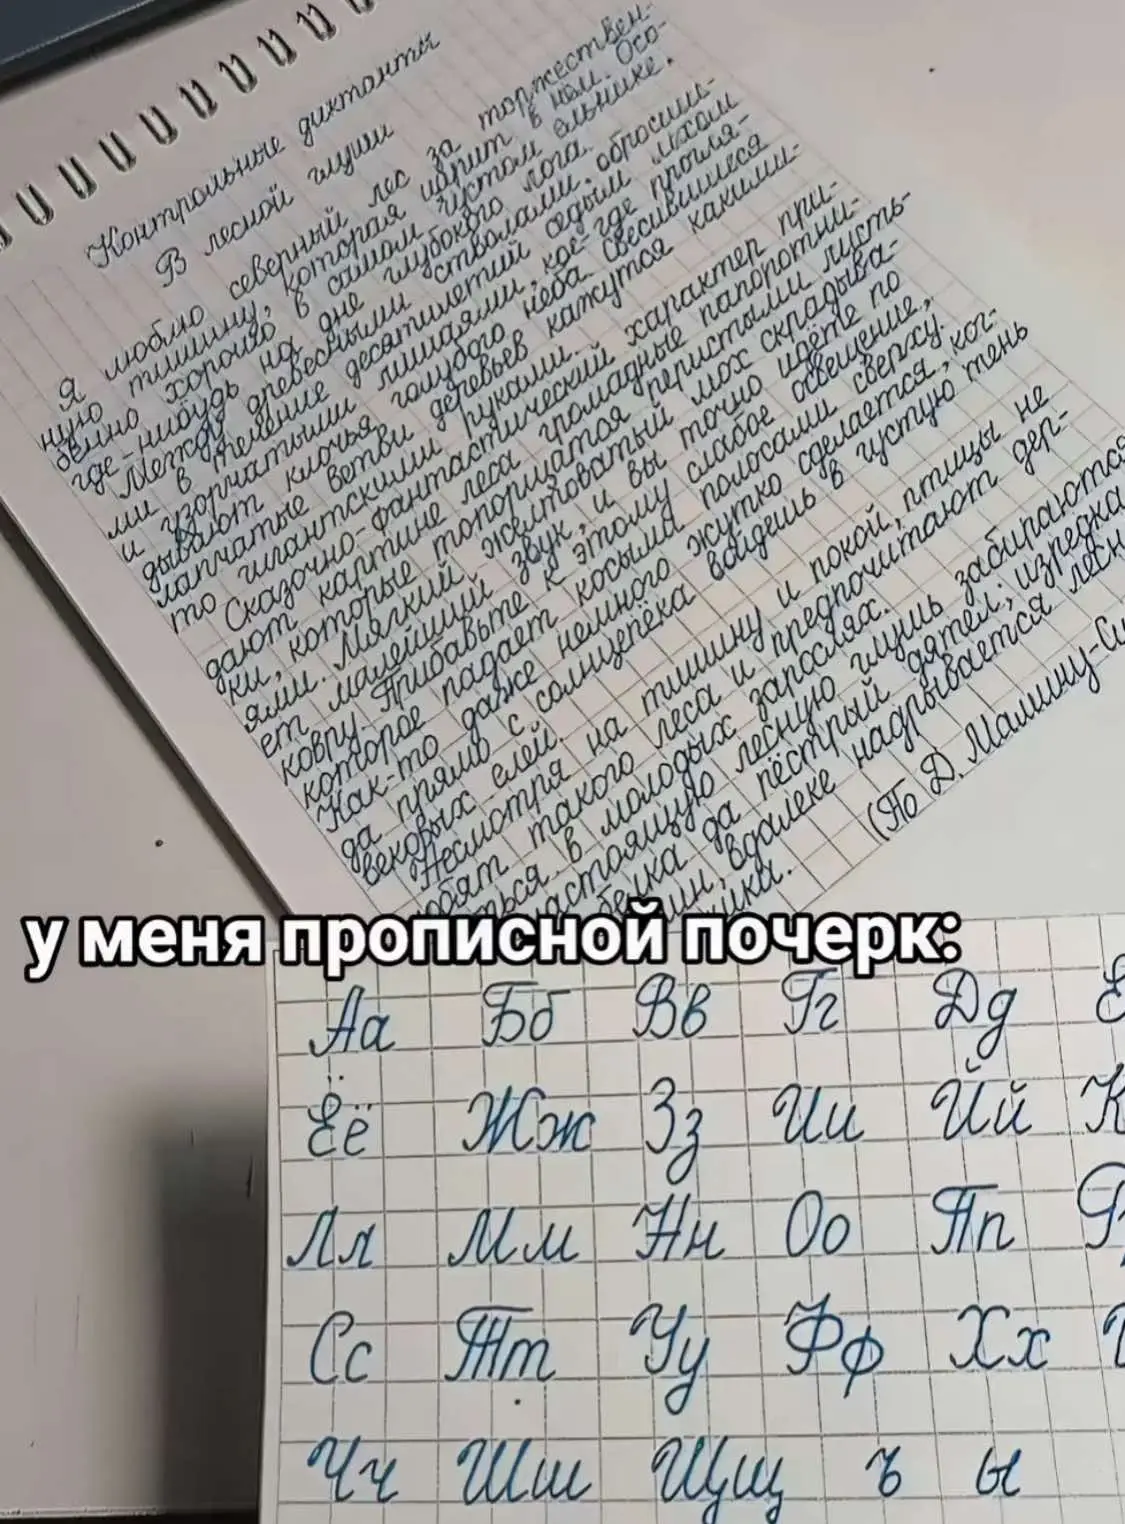 Контрольные диктанты
В лесной глуши
Я люблю северный лес за торжествен-
ную тишину, которая царит в нём. Осо-
бенно хорошо в самом густом ельнике,
где-нибудь на дне глубокого лога.
Между древесными стволами, обросши-
ми в течение десятилетий седым мхом
и узорчатыми лишаями, кое-где прогля-
дывают клочья голубого неба. Свесившиеся
лапчатые ветви деревьев кажутся какими-
то гигантскими руками.
Сказочно-фантастический характер при-
дают картине леса громадные папоротни-
ки, которые топорщатся перистыми листь-
ями. Мягкий желтоватый мох скрадыва-
ет малейший звук, и вы точно идёте по
ковру. Прибавьте к этому слабое освещение,
которое падает косыми полосами сверху.
Как-то даже немного жутко сделается, ког-
да прямо с солнцепёка войдёшь в густую тень
вековых елей.
Несмотря на тишину и покой, птицы не
любят такого леса и предпочитают дер-
жаться в молодых зарослях.
настоящую лесную глушь забираются
белка да пёстрый дятел; изредка
вдалеке надрывается
(По Д. Мамину-Си
у меня прописной почерк:
Аа Бб Вв Гг Дд Е
Ёё Жж Зз Ии Йй К
Лл Мм Нн Оо Пп Р
Сс Тт Уу Фф Хх
Чч Шш Щщ ъ ы